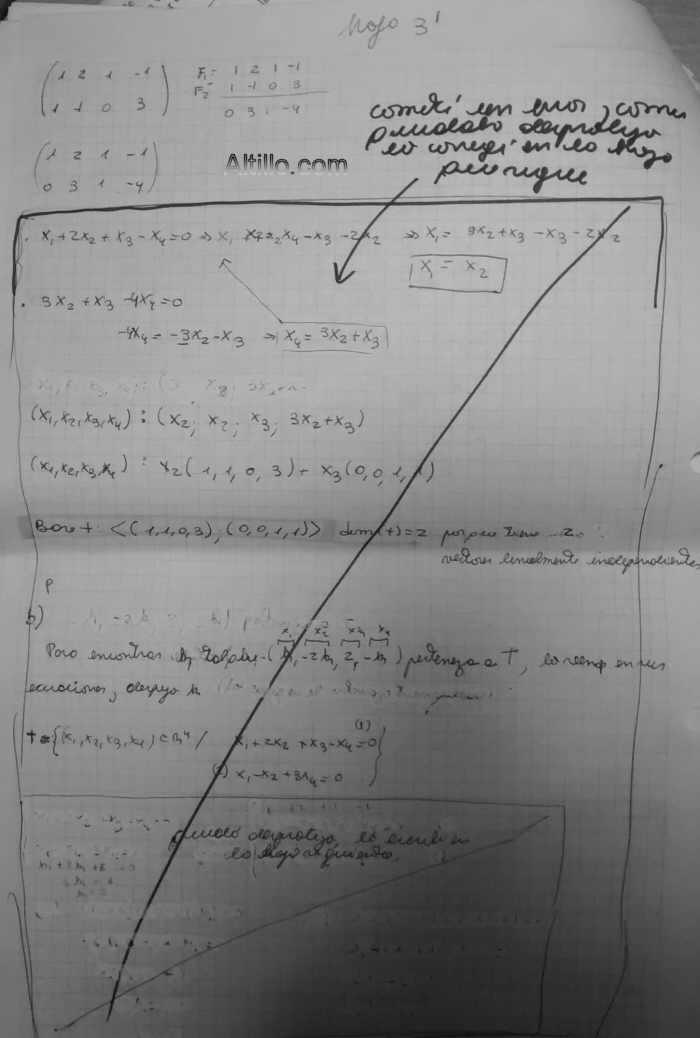 Hoja 3'
1 2 1 -1 F1: 1 2 1 -1
1 -1 0 3 F2: 1 -1 0 3
0 3 1 -4
1 2 1 -1
0 3 1 -4
cometí un error, como
quedaba desprolijo
lo corregí en la hoja
que sigue
Altillo.com
. x1+2x2+x3-x4=0 ⇒ x1 x4-x3-2x2 ⇒ x1= 3x2+x3-x3-2x2
x1= x2
. 3x2+x3-4x4=0
-4x4=-3x2-x3 ⇒ x4= 3x2+x3
(x1,x2,x3,x4) : (x2; x2; x3; 3x2+x3)
(x1,x2,x3,x4) : x2(1,1,0,3)+ x3(0,0,1,1)
Base t: <(1,1,0,3);(0,0,1,1)> dim(t)=2 porque tiene 2
vectores linealmente independientes
b)
x1 x2 x3 x4
Para encontrar k, tal que (k,-2k, 2,-k) pertenezca a T, lo reemp en sus
ecuaciones, despejo k
T={(x1,x2,x3,x4) ∈ R4 / x1+2x2+x3-x4=0 (1)
(2) x1-x2+3x4=0}
quedó desprolijo, lo escribí en
la hoja siguiente.